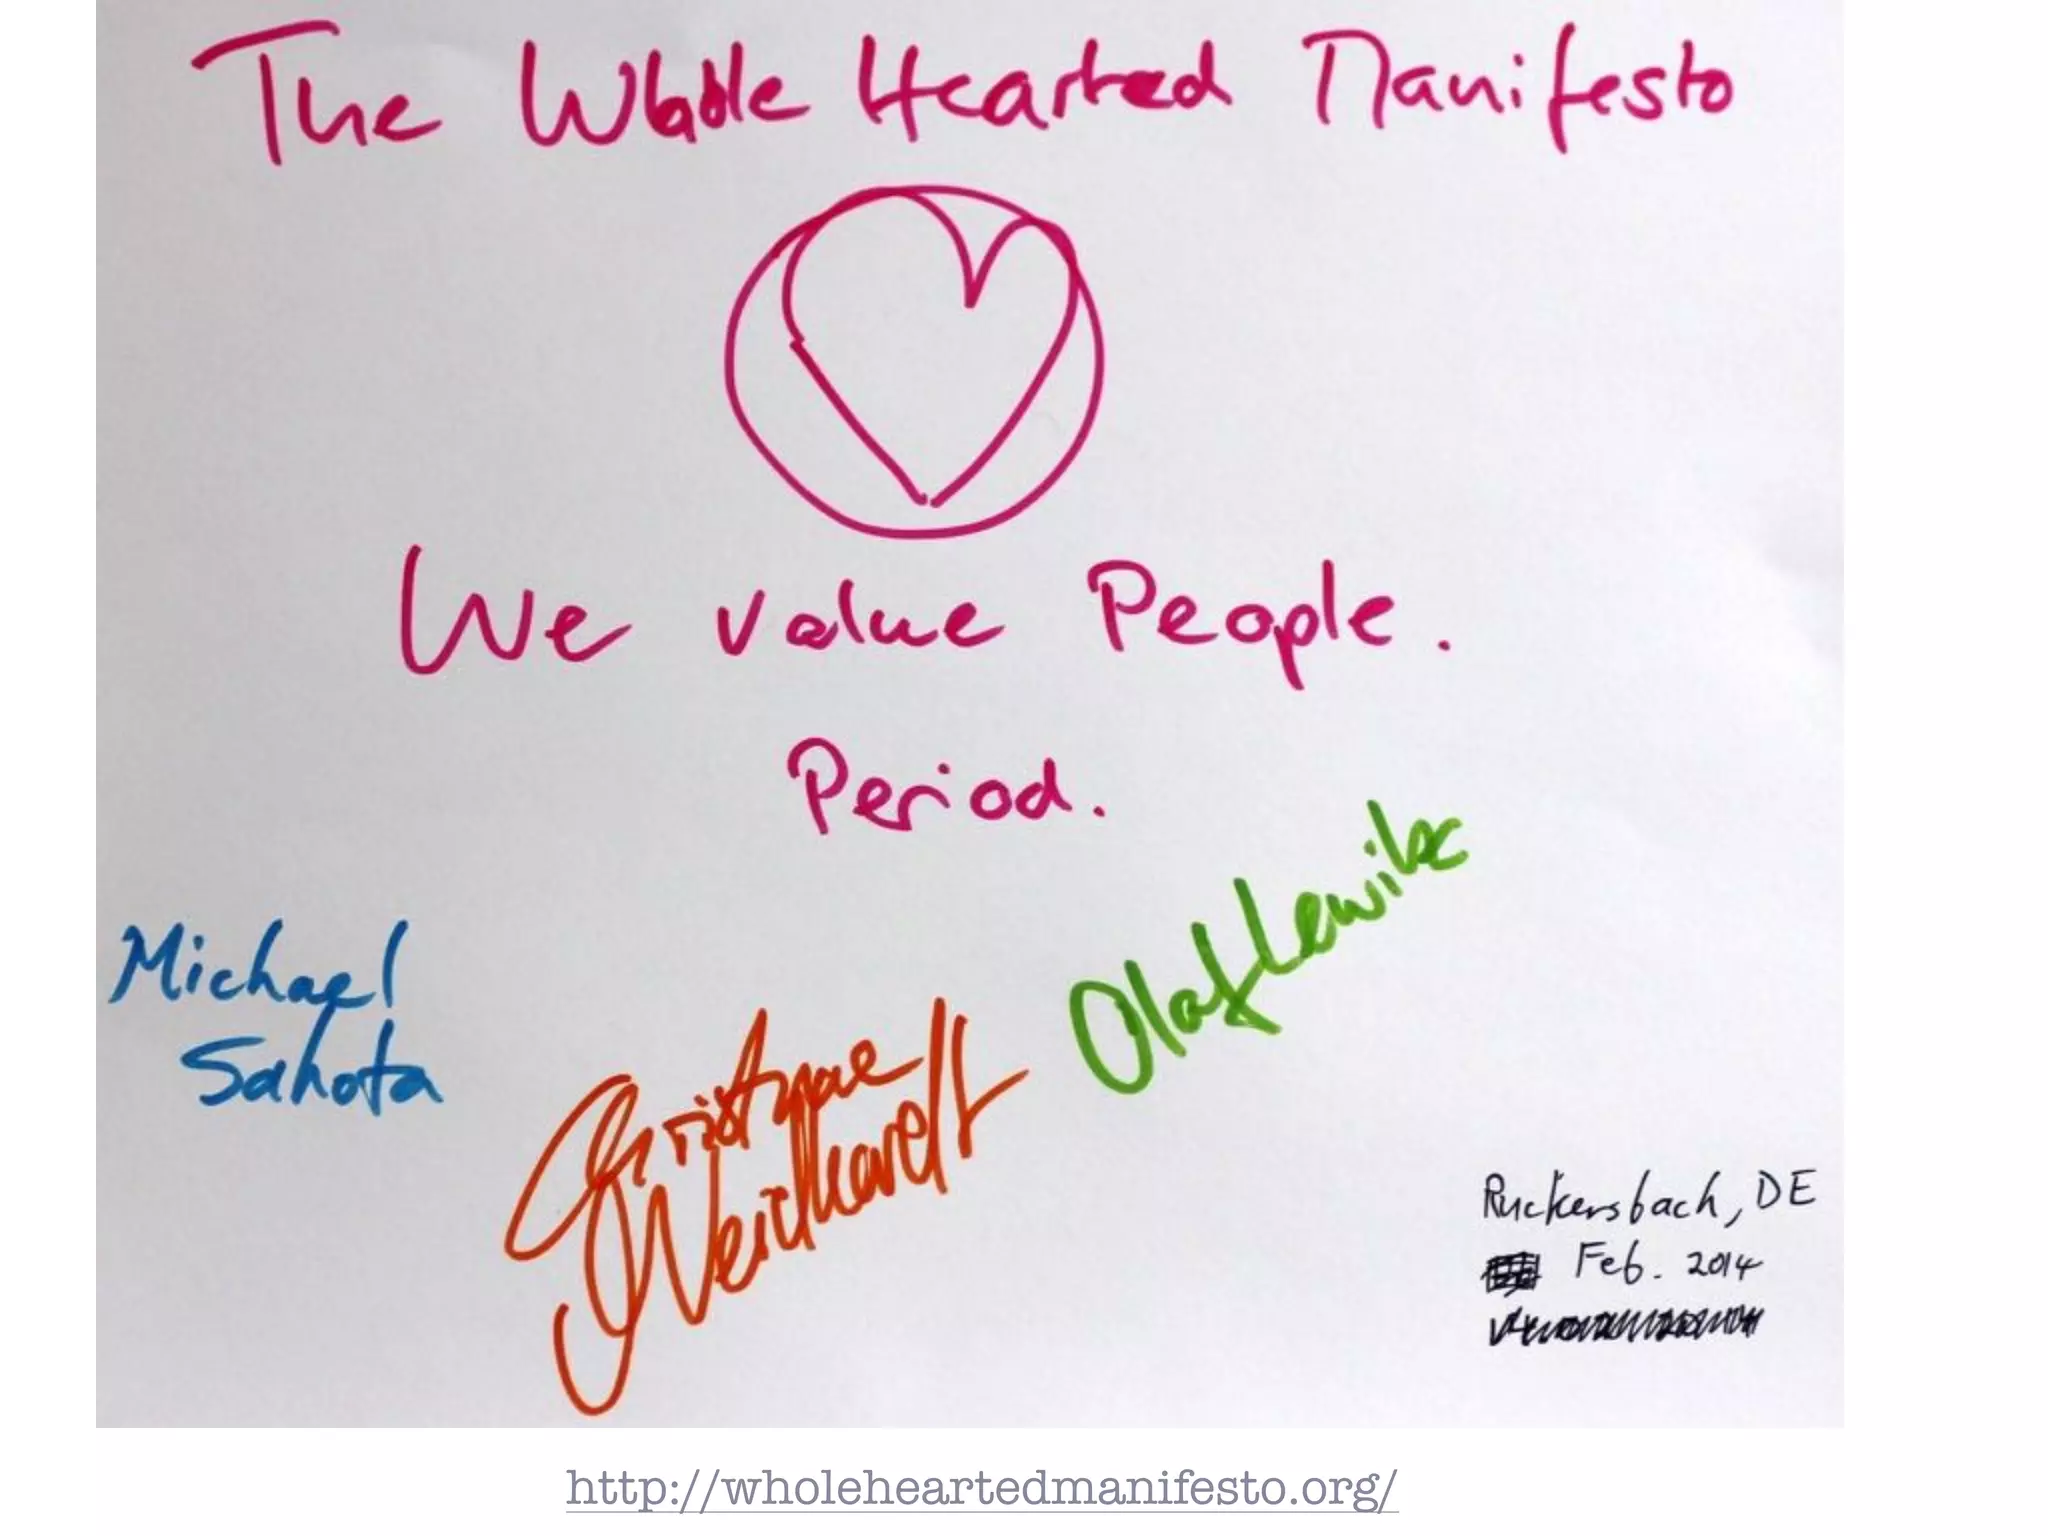 The Whole Hearted Manifesto
We value People.
Period.
Olaf Lewitz
Michael
Sahota
Christine
Neidhardt
Ruckersbach, DE
Feb. 2014
http://wholeheartedmanifesto.org/